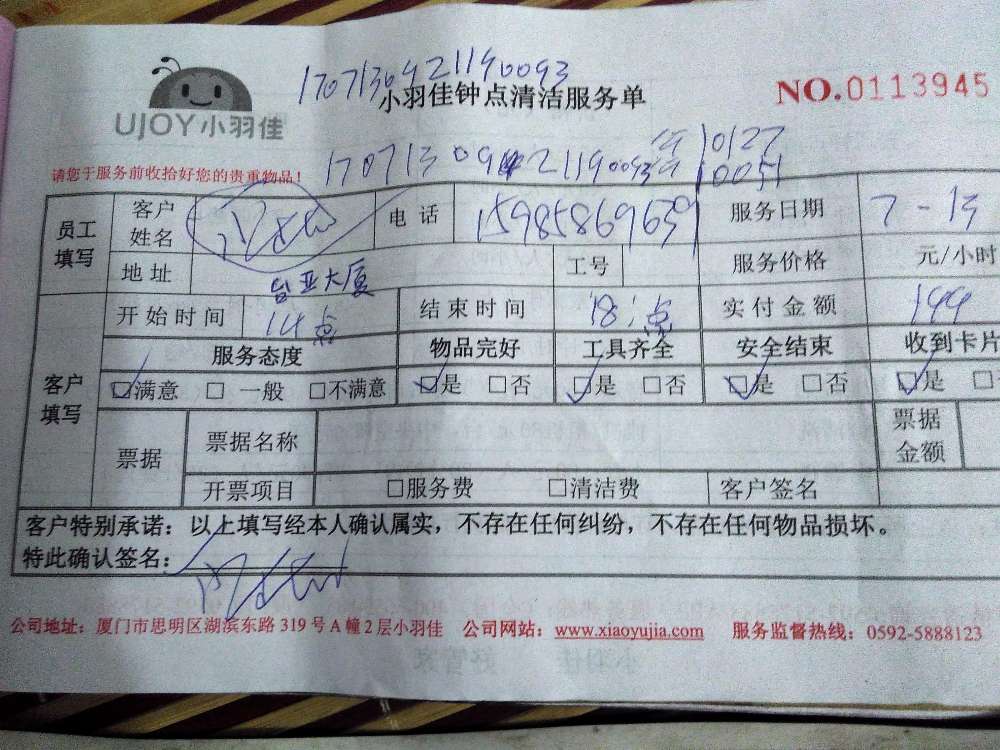 1707130921190093
小羽佳钟点清洁服务单
NO.0113945
UJOY小羽佳
请您于服务前收拾好您的贵重物品！
10127
10051
员工填写 客户姓名 电话 15985869639 服务日期 7-13
地址 台亚大厦 工号 服务价格 元/小时
客户填写 开始时间 14点 结束时间 18:点 实付金额 199
服务态度 物品完好 工具齐全 安全结束 收到卡片
☑满意 □一般 □不满意 ☑是 □否 ☑是 □否 ☑是 □否 ☑是 □
票据 票据名称 票据金额
开票项目 □服务费 □清洁费 客户签名
客户特别承诺：以上填写经本人确认属实，不存在任何纠纷，不存在任何物品损坏。
特此确认签名：
公司地址：厦门市思明区湖滨东路319号A幢2层小羽佳 公司网站：www.xiaoyujia.com 服务监督热线：0592-5888123